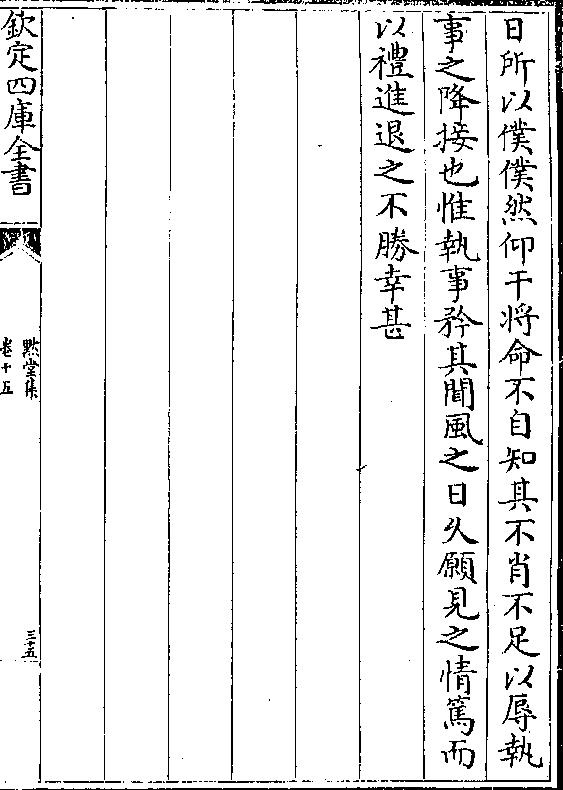 日所以僕僕然仰干将命不自知其不肖不足以辱執
事之降接也惟執事矜其聞風之日久願見之情篤而
以禮進退之不勝幸甚
欽定四庫全書
默堂集
卷十五
三十五